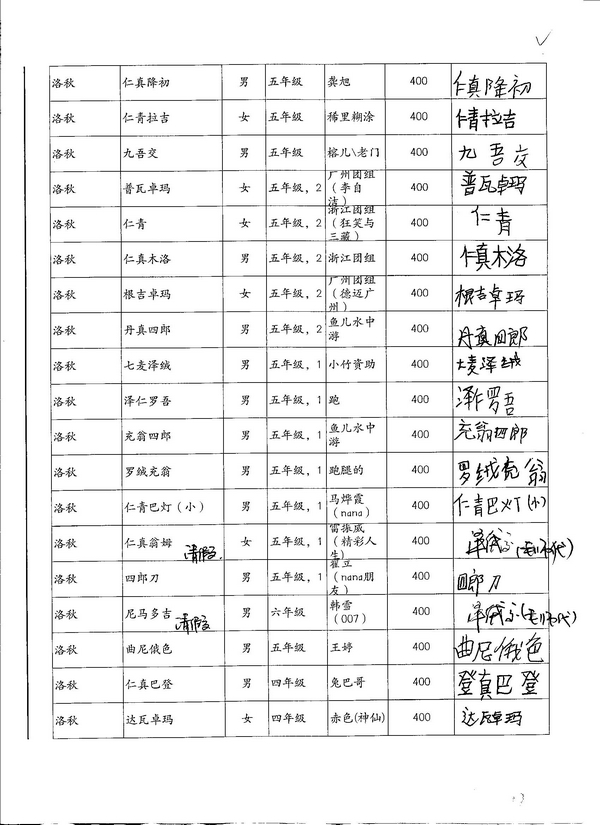 洛秋 仁真降初 男 五年级 龚旭 400 仁真降初
洛秋 仁青拉吉 女 五年级 稀里糊涂 400 仁青拉吉
洛秋 九吾交 男 五年级 榕儿\老门 400 九吾交
洛秋 普瓦卓玛 女 五年级，2 广州团组（李自洁） 400 普瓦卓玛
洛秋 仁青 女 五年级，2 浙江团组（狂笑与三藏） 400 仁青
洛秋 仁真木洛 男 五年级，2 浙江团组 400 仁真木洛
洛秋 根吉卓玛 女 五年级，2 广州团组（德迈广州） 400 根吉卓玛
洛秋 丹真四郎 男 五年级，2 鱼儿水中游 400 丹真四郎
洛秋 七麦泽绒 男 五年级，1 小竹资助 400 麦泽绒
洛秋 泽仁罗吾 男 五年级，1 跑 400 泽仁罗吾
洛秋 充翁四郎 男 五年级，1 鱼儿水中游 400 充翁四郎
洛秋 罗绒充翁 男 五年级，1 跑腿的 400 罗绒充翁
洛秋 仁青巴灯（小） 男 五年级，1 马烨霞（nana） 400 仁青巴灯(小)
洛秋 仁真翁姆 请假 女 五年级，1 雷振威（精彩人生） 400
洛秋 四郎刀 男 五年级，1 翟立（nana朋友） 400 四郎刀
洛秋 尼马多吉 请假 男 六年级 韩雪（007） 400
洛秋 曲尼俄色 男 五年级 王婷 400 曲尼俄色
洛秋 仁真巴登 男 四年级 兔巴哥 400 登真巴登
洛秋 达瓦卓玛 女 四年级 赤色(神仙) 400 达瓦卓玛